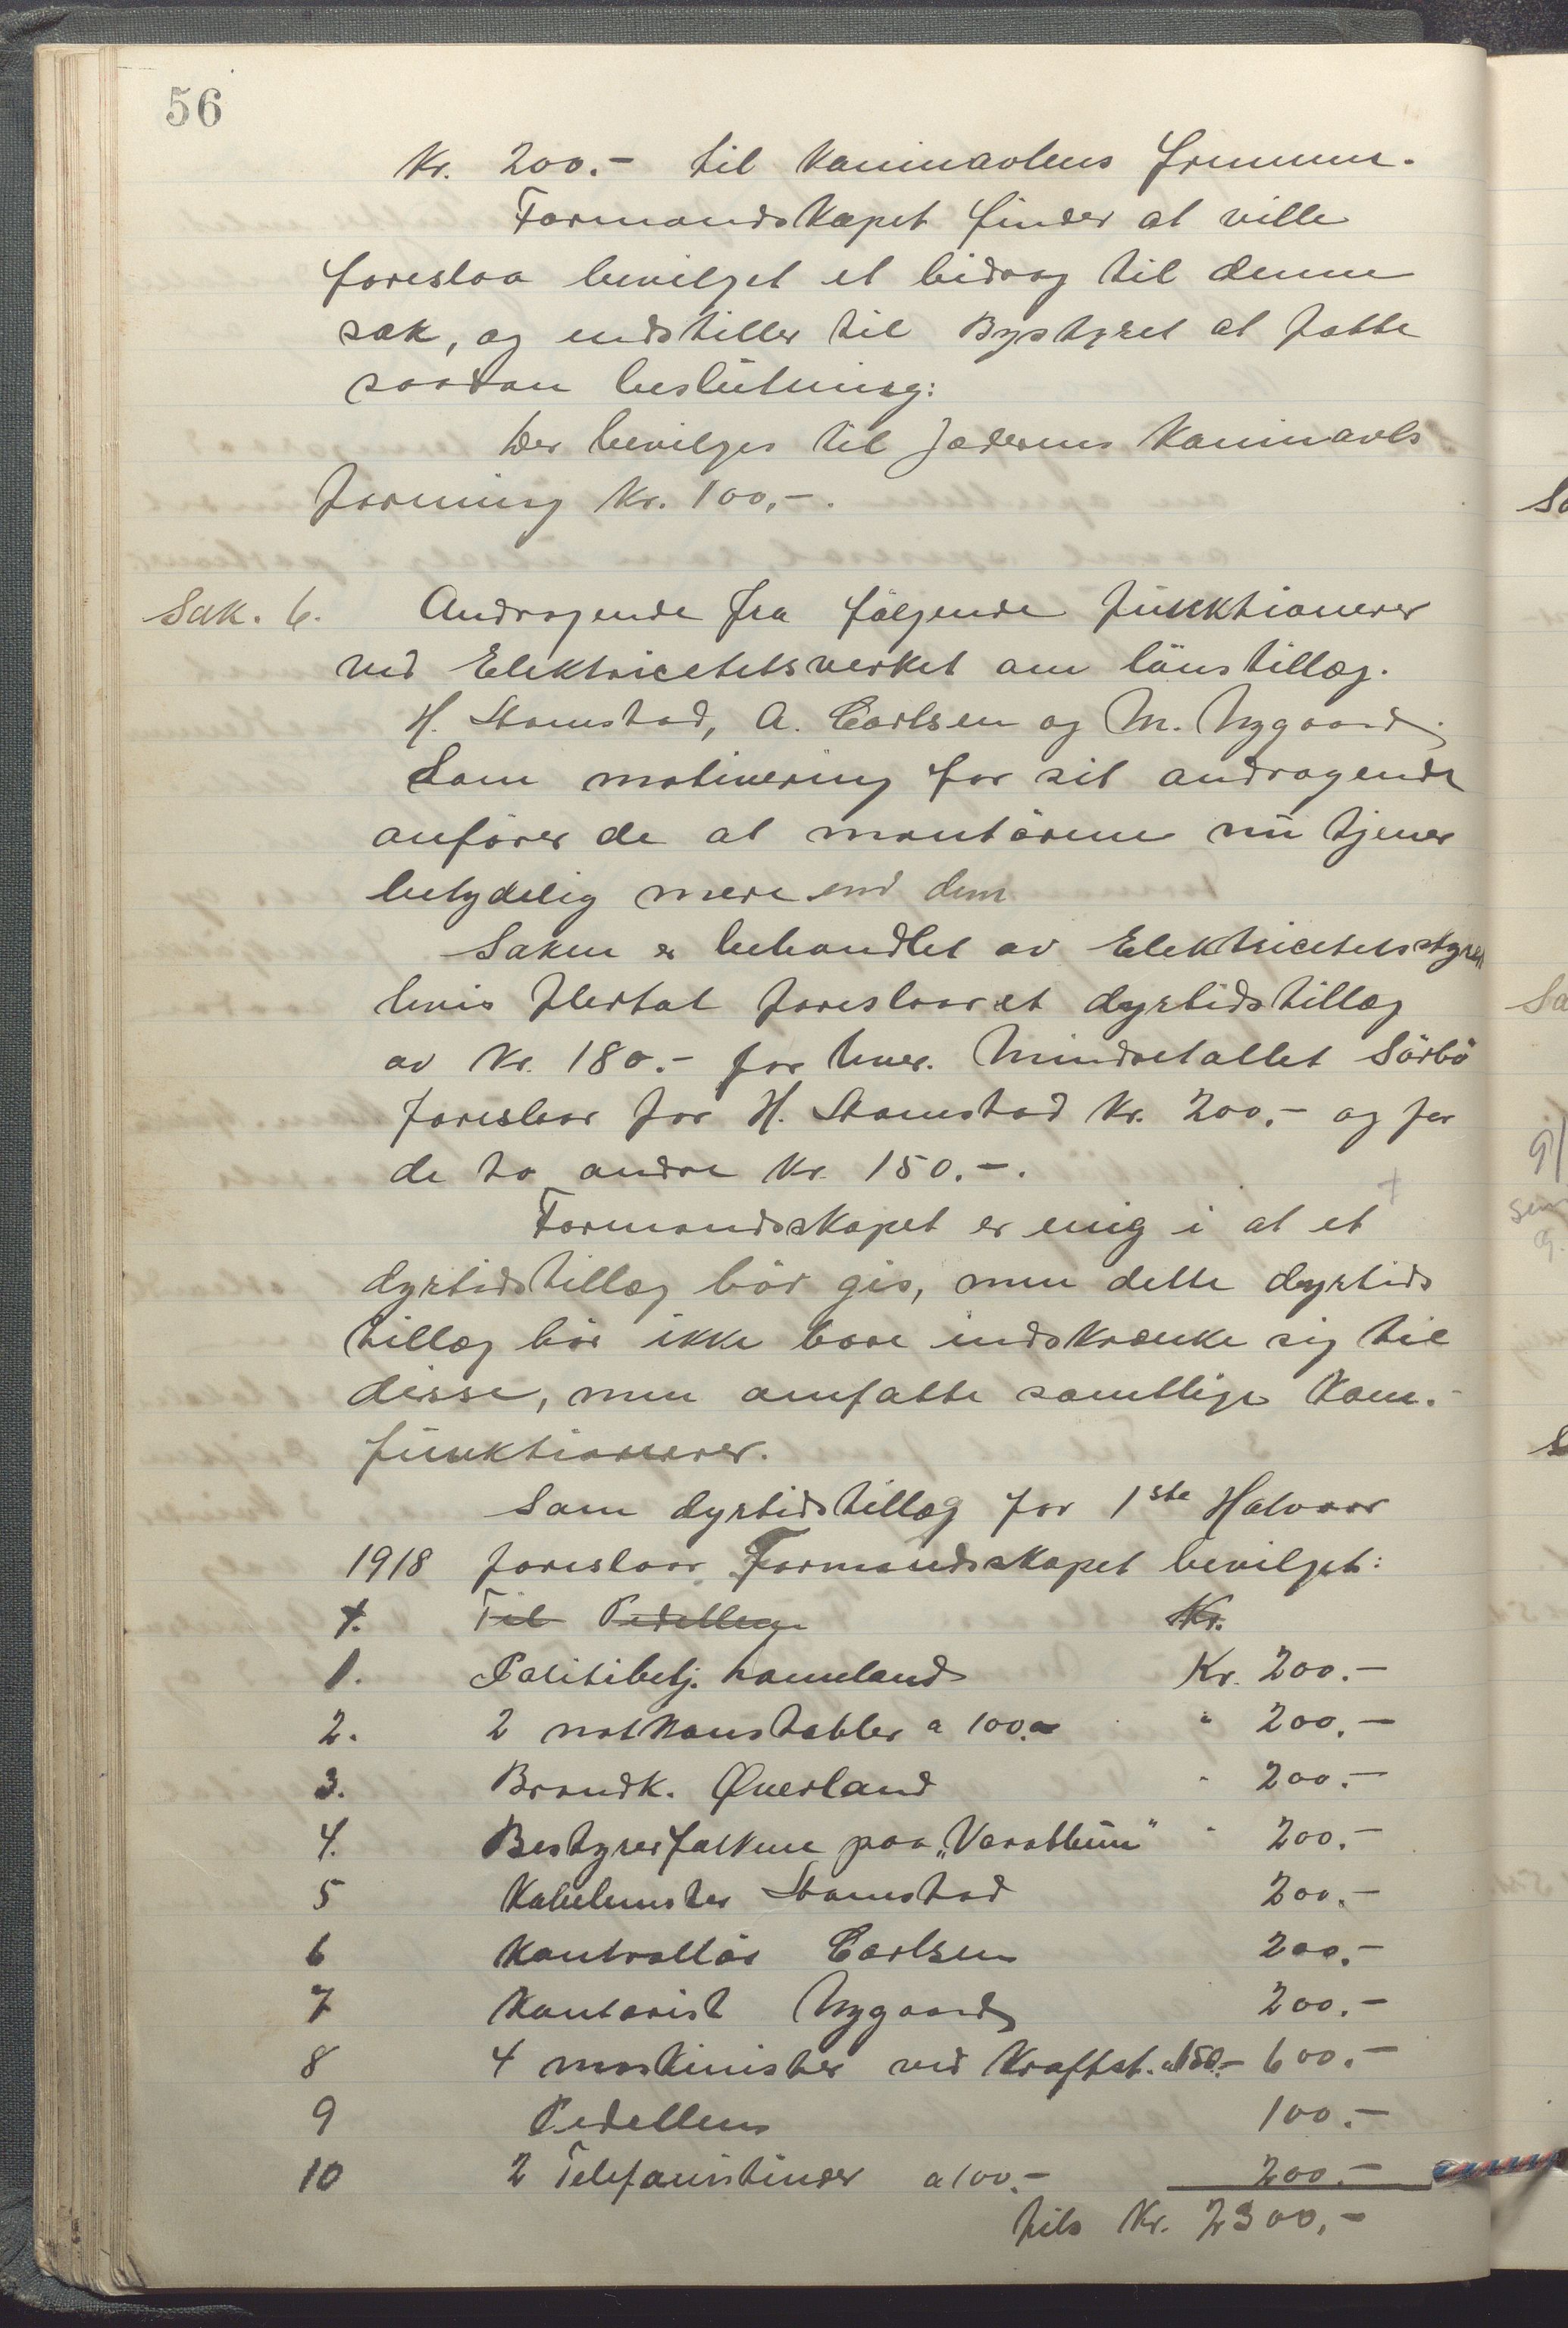 56
Kr. 200.- til Kaninavlens fremme.
Formandskapet finder at ville
foreslaa bevilget et bidrag til denne
sak, og indstiller til Bystyret at fatte
saadan beslutning:
Der bevilges til Jæderens Kaninavls
forening Kr. 100,-.
Sak. 6. Andragende fra følgende funktionerer
ved Elektricetetsverket om lønstillæg.
H. Stamstad, A. Carlsen og M. Nygaard.
Som motivering for sit andragende
anfører de at montørene nu tjener
betydelig mere end dem
Saken er behandlet av Elektricetetsstyret
hvis flertal foreslaar et dyrtidstillæg
av Kr. 180.- for hver. Mindretallet Sörbö
foreslaar for H. Stamstad Kr. 200,- og for
de to andre Kr. 150.-.
Formandsskapet er enig i at et
dyrtidstillæg bör gis, men dette dyrtids
tillæg bör ikke bare indskrænke sig til
disse, men omfatte samtlige Kom.-
funktionerer.
Som dyrtidstillæg for 1ste Halvaar
1918 foreslaar Formandsskapet bevilget:
1. Til Pedellen Kr.
1. Politibetj. Kr. 200.-
2. 2 natkonstabler a 100.- " 200.-
3. Brandk. Øverland " 200.-
4. Bestyrerfolkene paa „Varatun" " 200.-
5 Kabelmester Stamstad 200.-
6 Kontrollör Carlsen 200.-
7 Kontorist Nygaard 200.-
8 4 maskinister ved Kraftst. a 150.- 600.-
9 Pedellen 100.-
10 2 Telefonistinder a 100.- 200.-
tils Kr. 2300,-